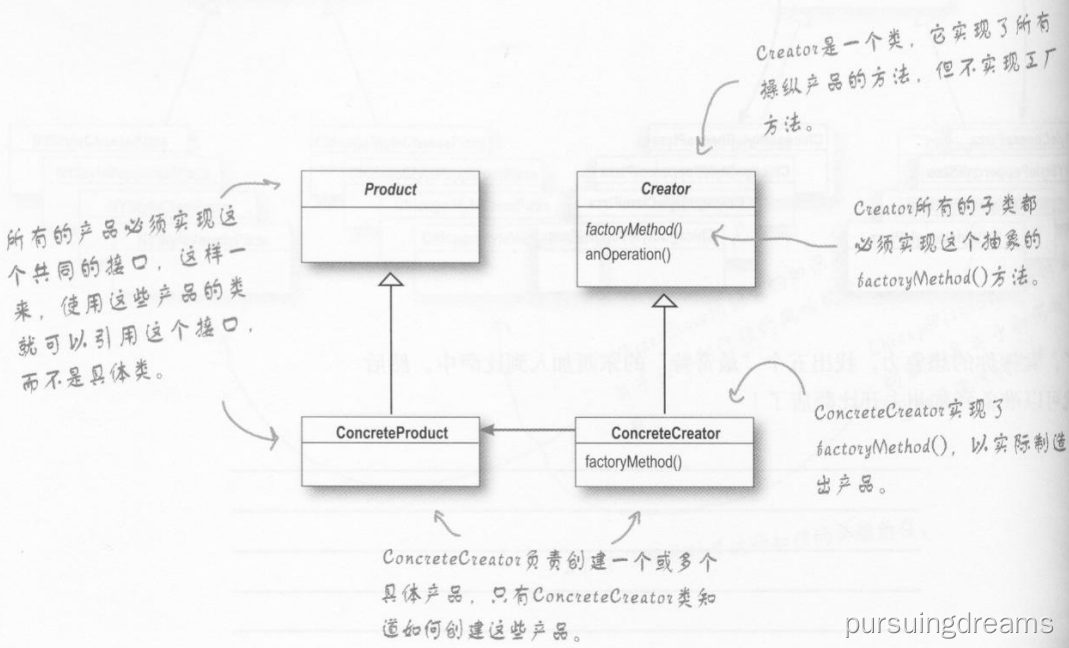 Creator是一个类，它实现了所有
操纵产品的方法，但不实现工厂
方法。
Product
Creator
factoryMethod()
anOperation()
所有的产品必须实现这
个共同的接口，这样一
来，使用这些产品的类
就可以引用这个接口，
而不是具体类。
Creator所有的子类都
必须实现这个抽象的
factoryMethod()方法。
ConcreteProduct
ConcreteCreator
factoryMethod()
ConcreteCreator实现了
factoryMethod()，以实际制造
出产品。
ConcreteCreator负责创建一个或多个
具体产品，只有ConcreteCreator类知
道如何创建这些产品。
pursuingdreams